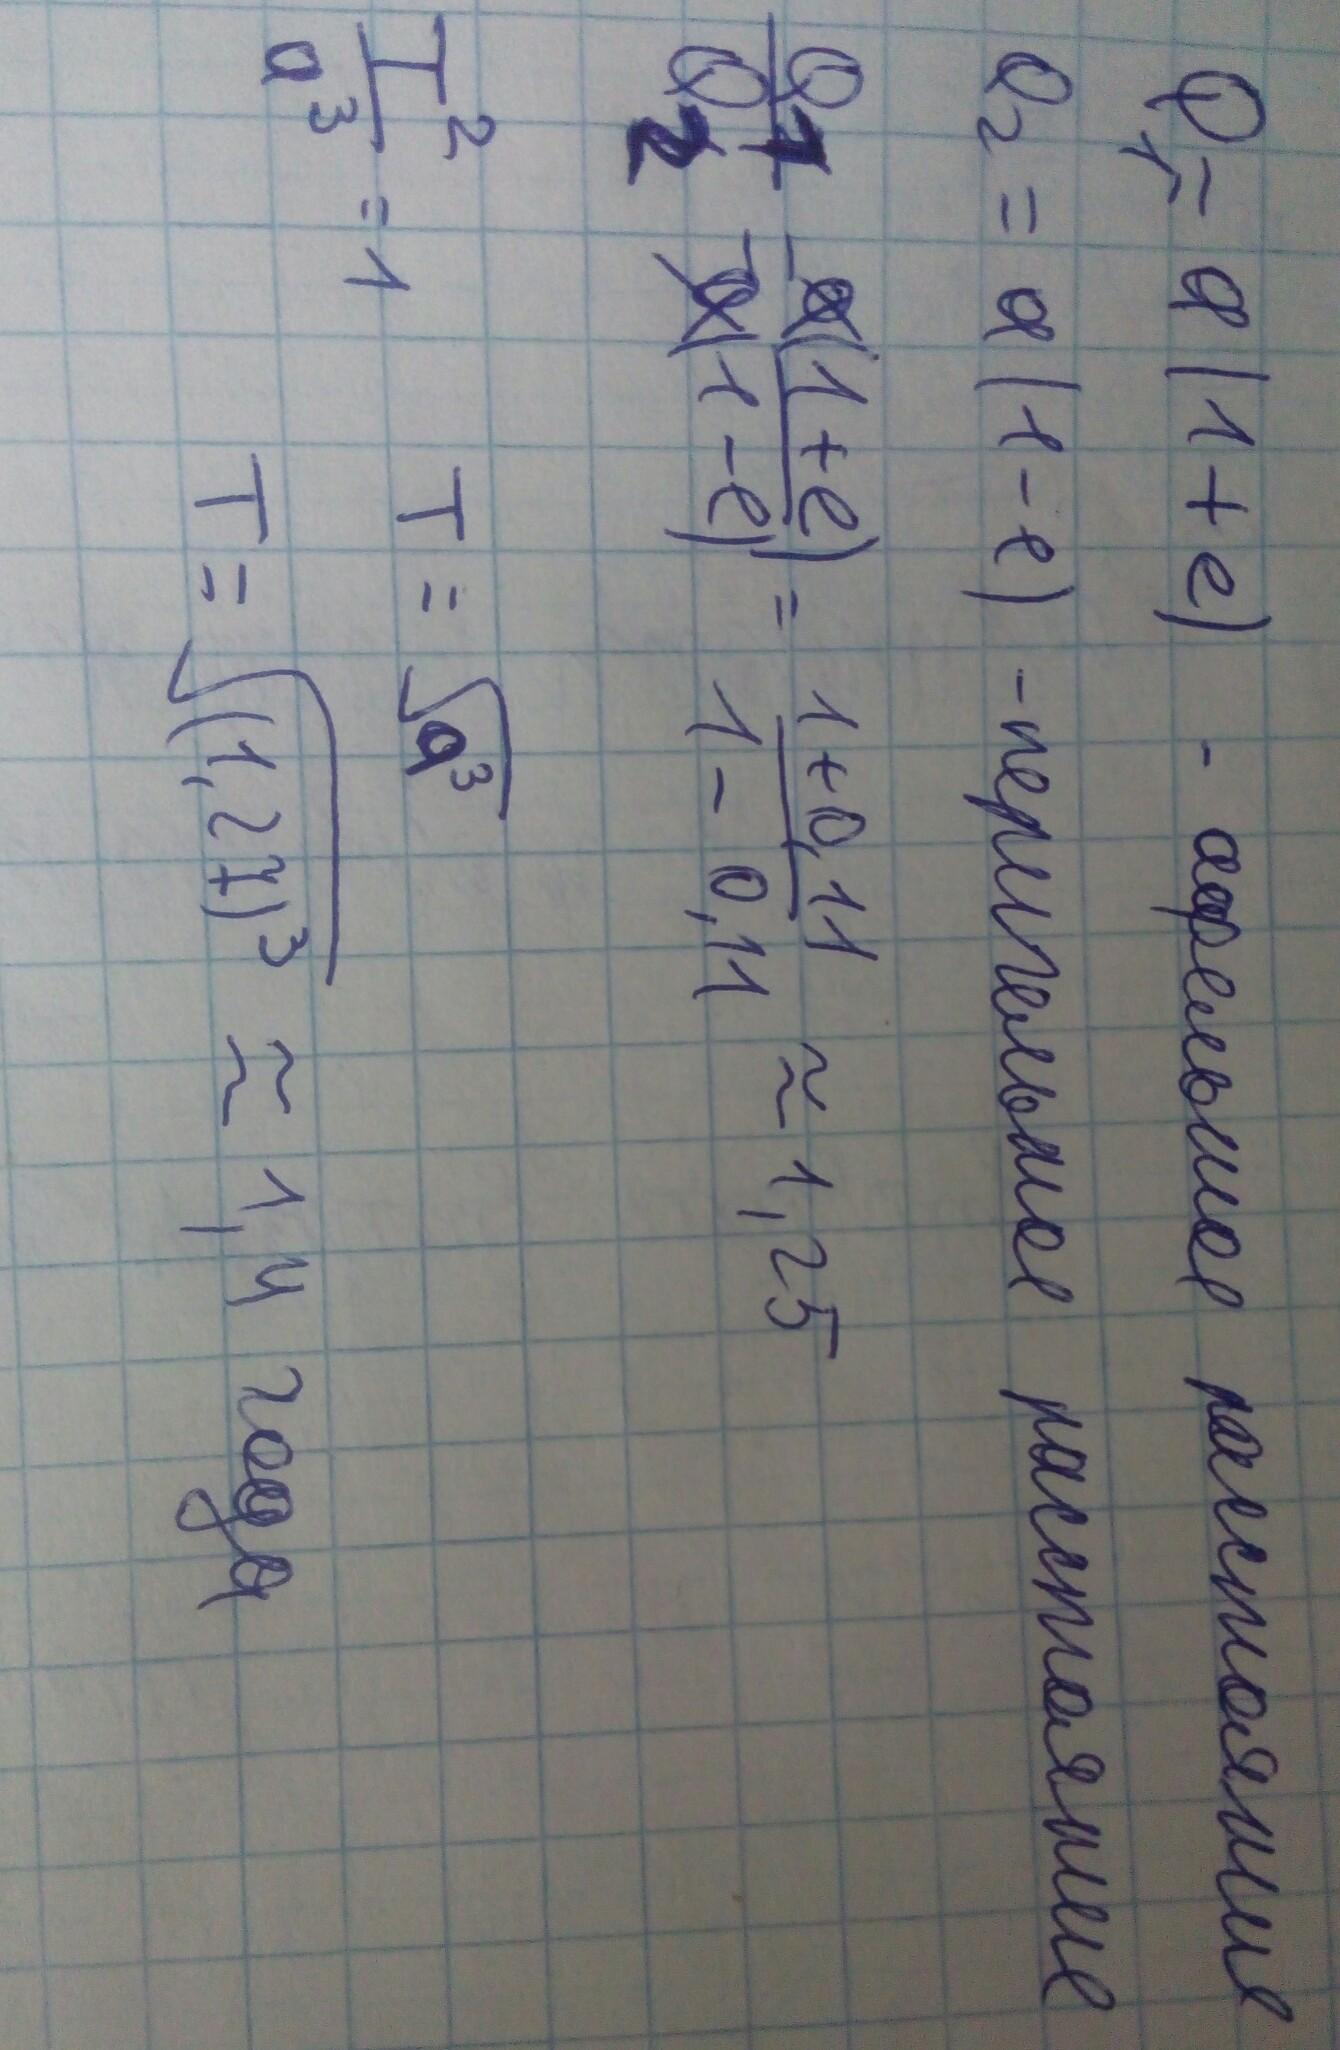 Q₁ = a(1+e) - афельное расстояние
Q₂ = a(1-e) - перигельное расстояние
Q₁/Q₂ = a(1+e)/a(1-e) = 1+0,11/1-0,11 ≈ 1,25
T²/a³ = 1 T = √a³
T = √(1,27)³ ≈ 1,4 года